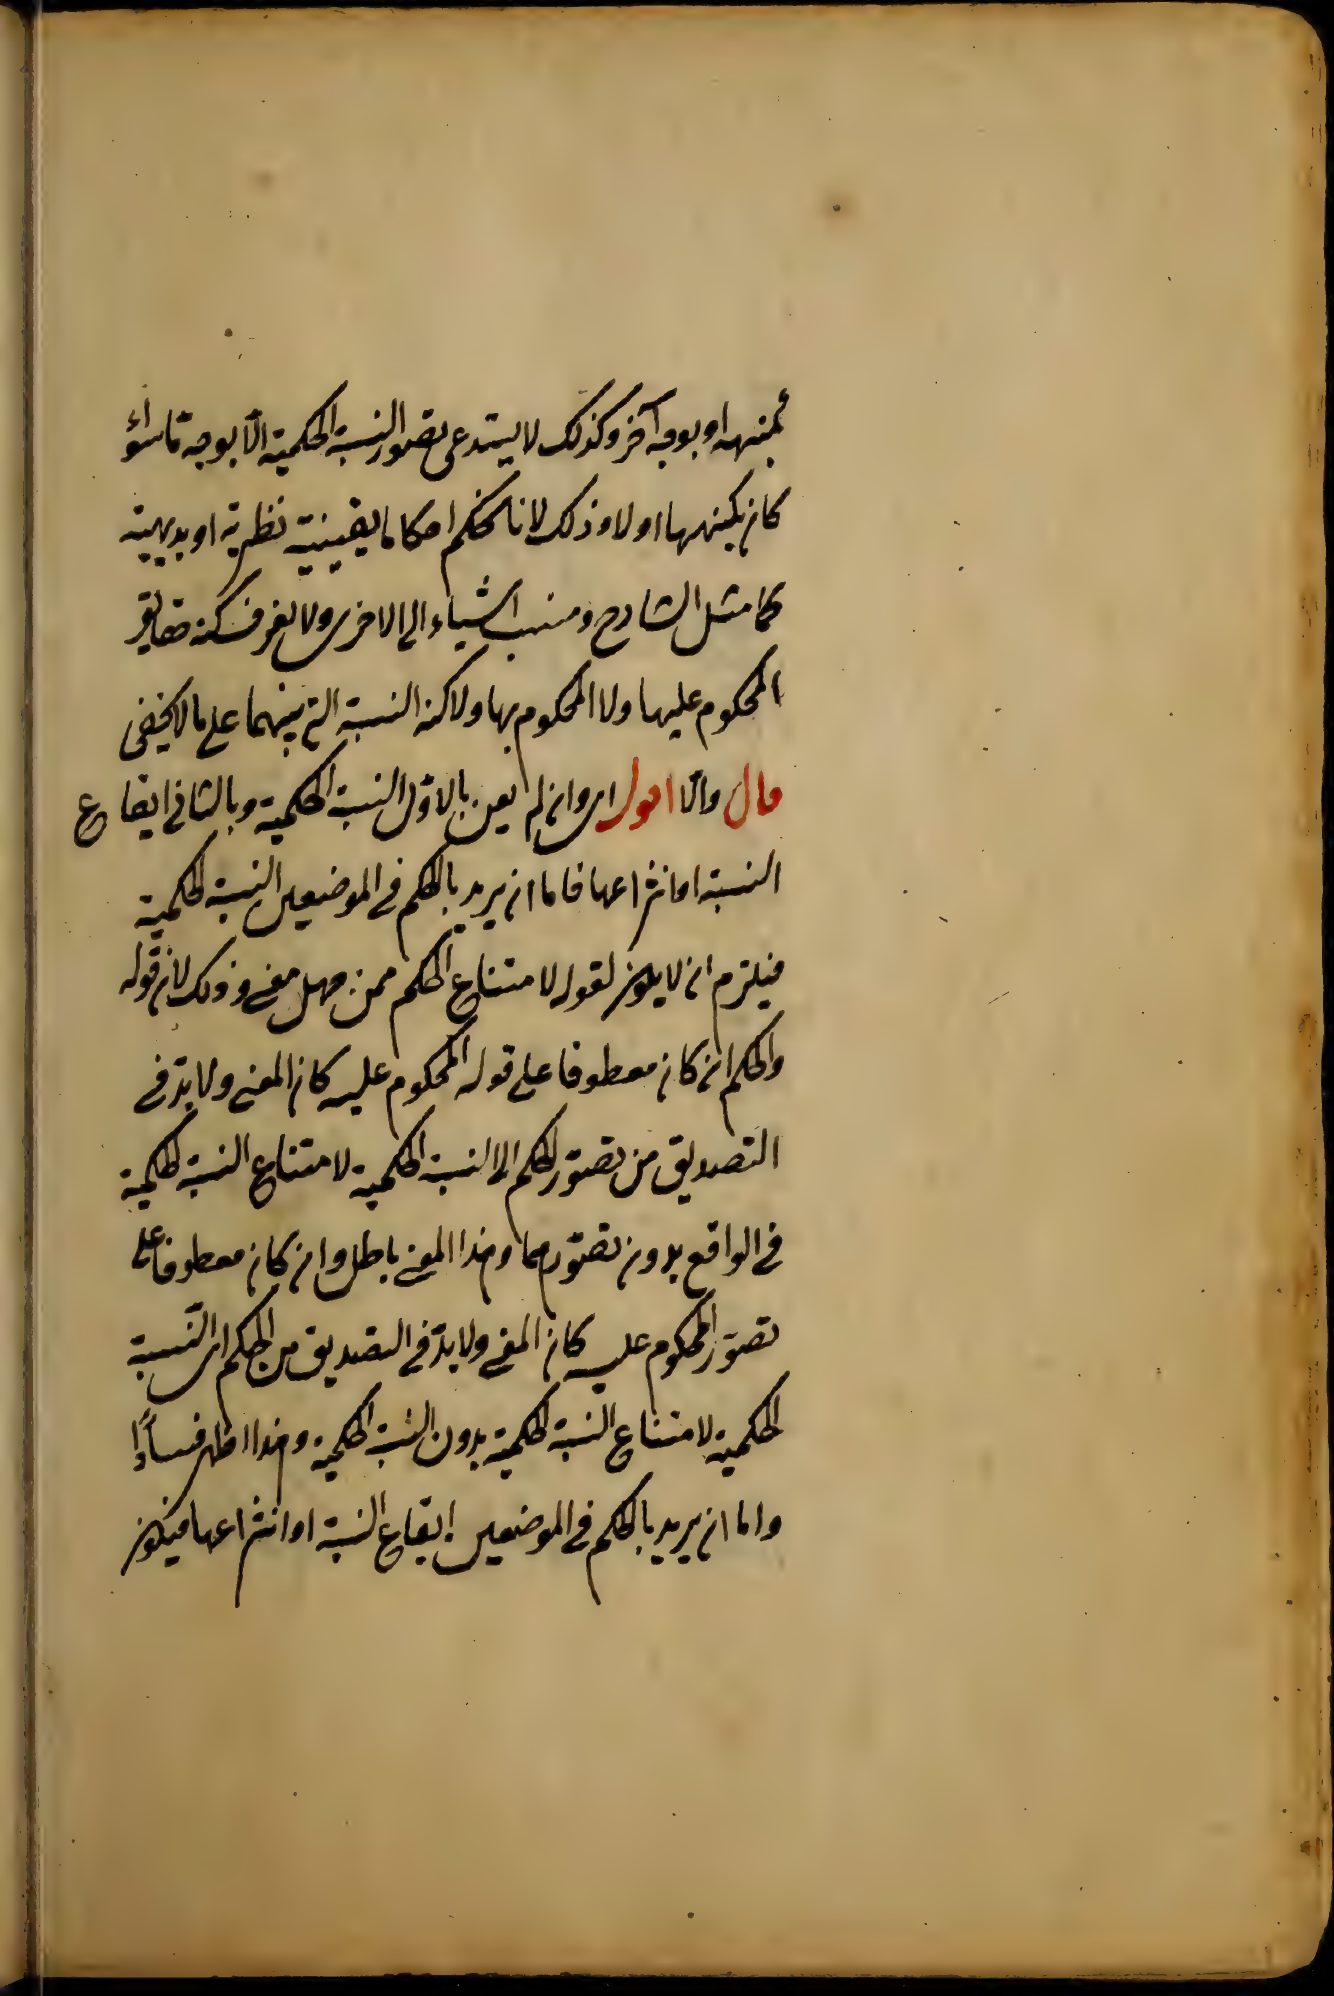 بكنهه او بوجه آخر وكذلك لا يستدعى تصور النسبة الحكمية الّا بوجه ما سواء
كان بكنهها او لا وذلك لانا نحكم احكاما يقينية نظرية او بديهية
كما مثل الشارح ومنسب اشياء الى الاخرى ولا نعرف كنه حقايق
المحكوم عليها ولا المحكوم بها ولا كنه النسبة التى بينهما على ما لا يخفى
قال والّا اقول اى وان لم يعن بالاوّل النسبة الحكمية وبالثانى ايقاع
النسبة او انتزاعها فاما ان يريد بالحكم فى الموضعين النسبة الحكمية
فيلزم ان لا يكون لقوله لامتناع الحكم ممن جهل معنى وذلك لان قوله
والحكم ان كان معطوفا على قوله المحكوم عليه كان المعنى ولا بدّ فى
التصديق من تصوّر الحكم اى النسبة الحكمية لامتناع النسبة الحكمية
فى الواقع بدون تصوّرهما وهذا المعنى باطل وان كان معطوفا على
تصوّر المحكوم عليه كان المعنى ولا بدّ فى التصديق من الحكم اى النّسبة
الحكمية لامتناع النسبة الحكمية بدون النسبة الحكمية وهذا اظهر فسادًا
واما ان يريد بالحكم فى الموضعين ايقاع النسبة او انتزاعها فيكون